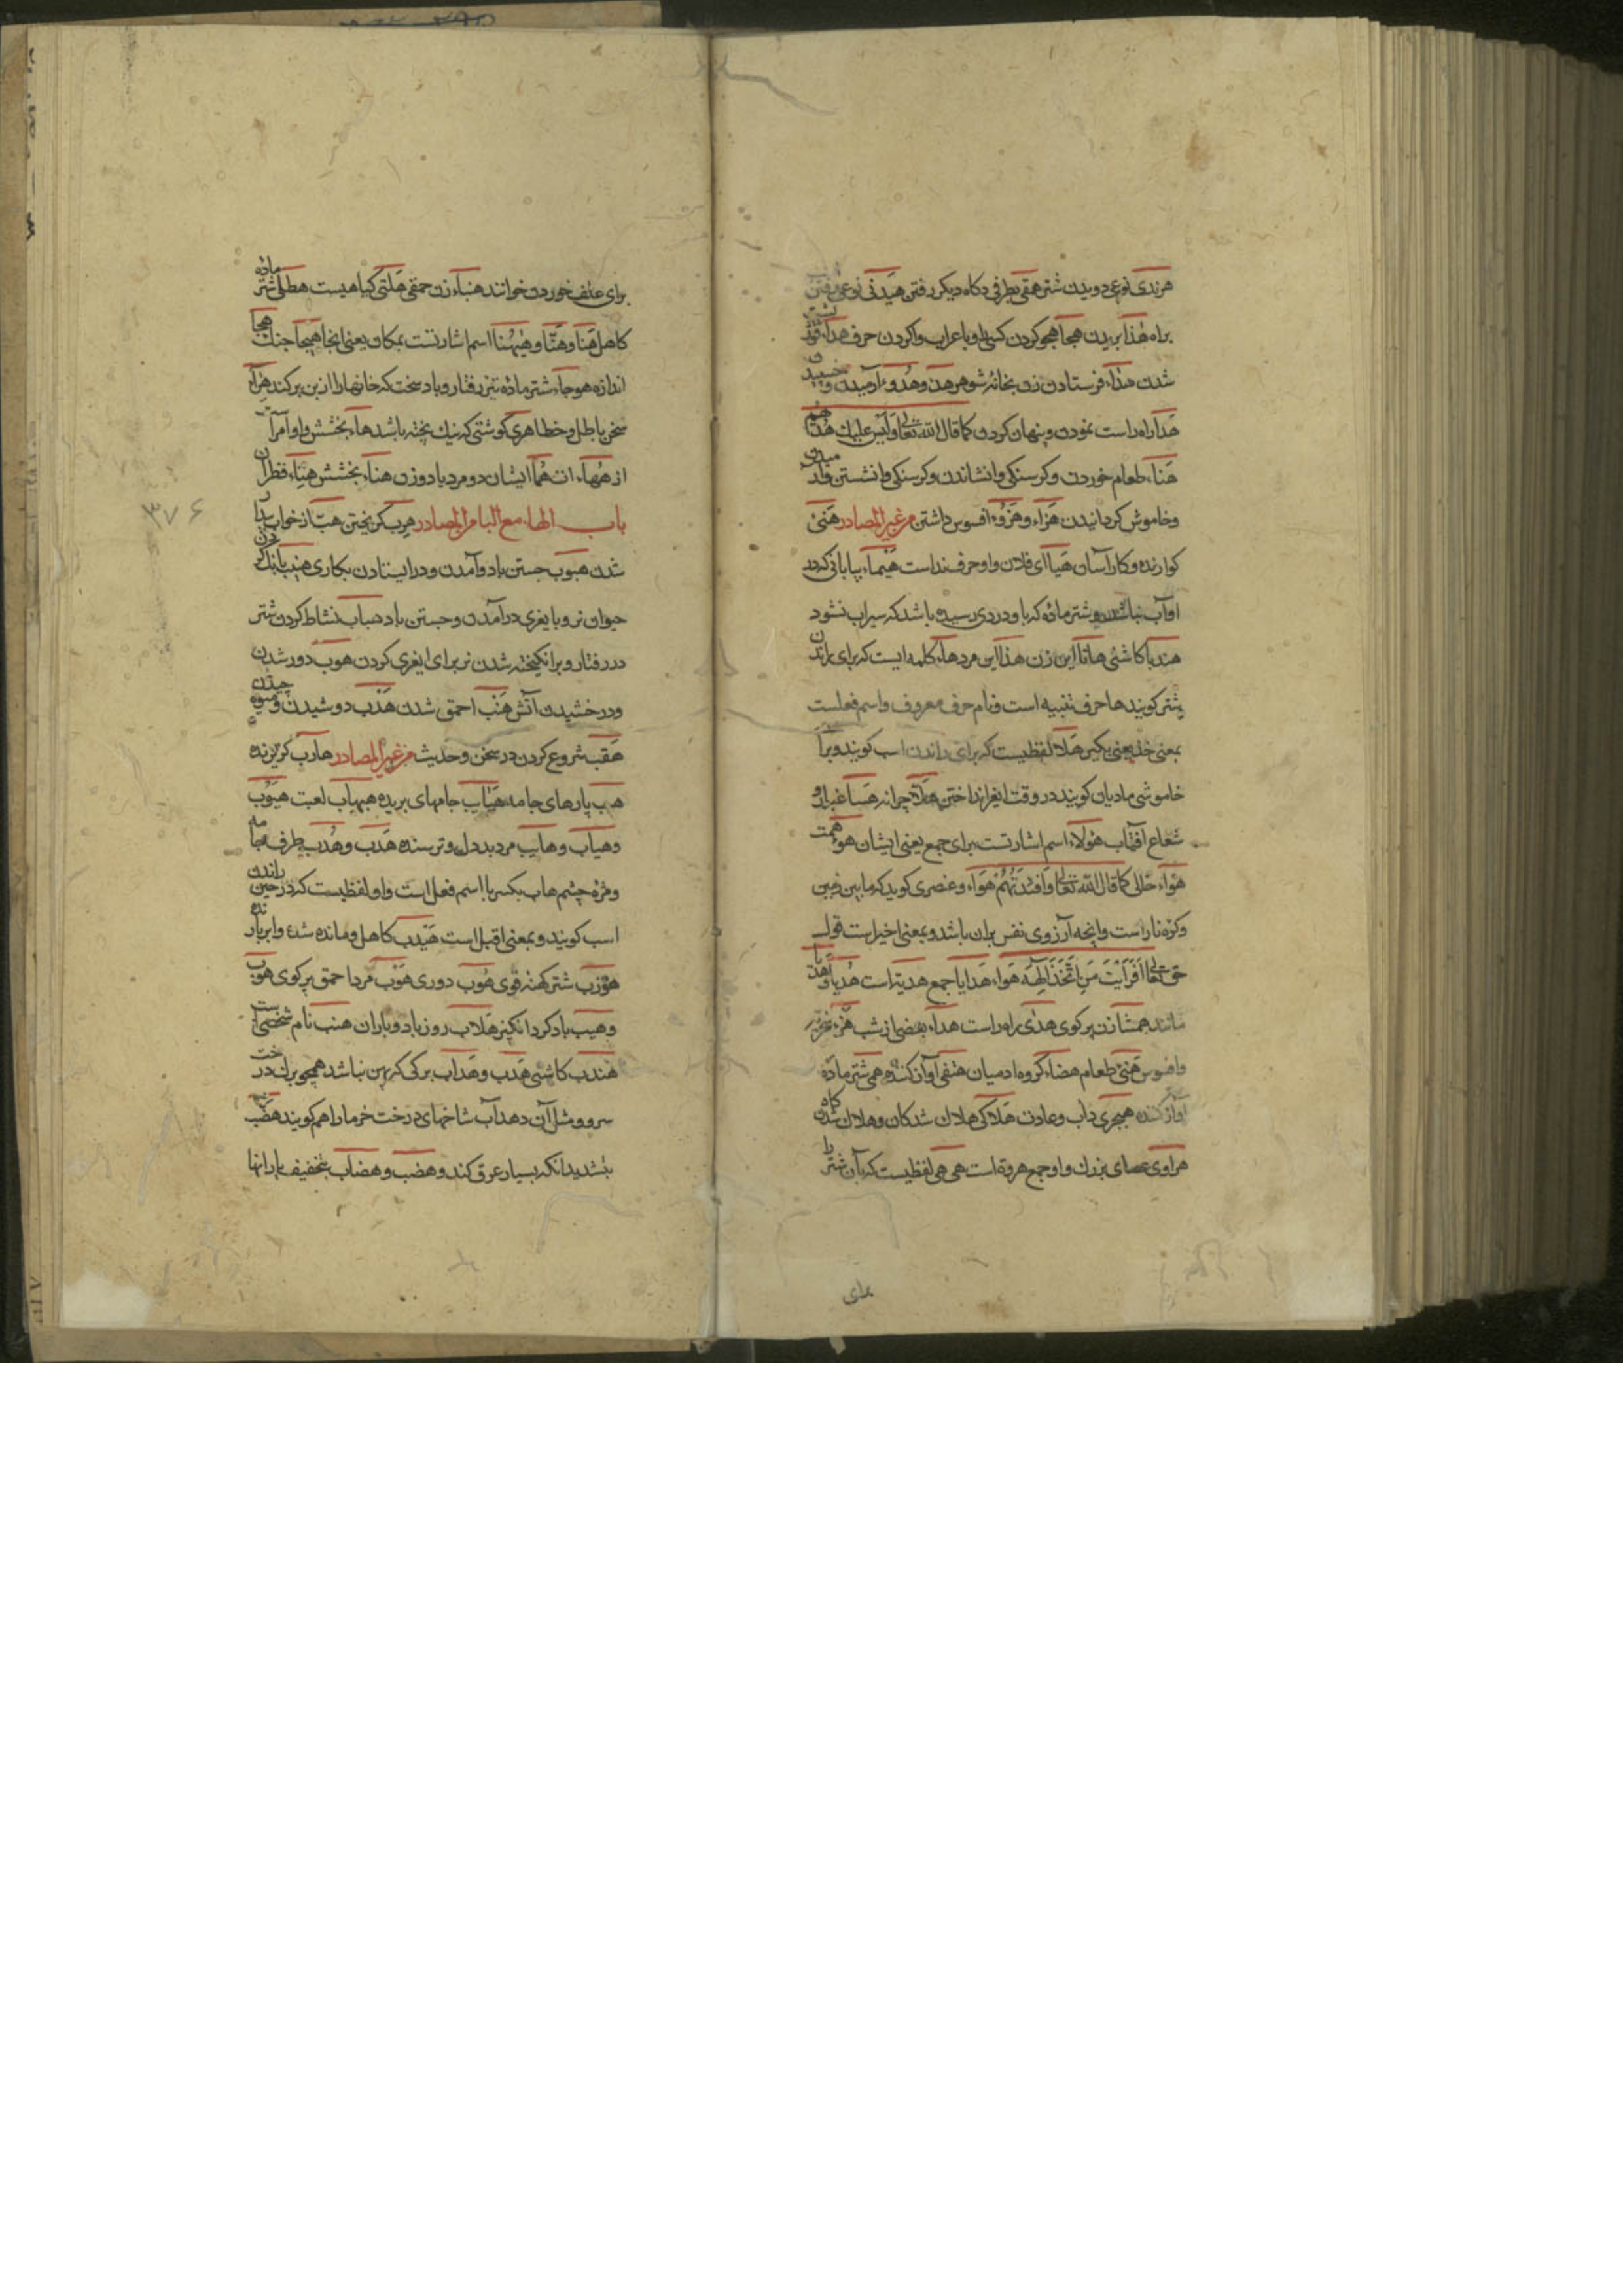 هرندی نوعی دویدن شتر هقی بطرفی دکاه دیکر رفتن هیدنی نوعی رفتن
براه هذا بریدن هجا هجو کردن کسی را و با عراب واکردن حرف هداء
شدن هداء فرستادن زن بخانه شوهر هدء و هدوء آرمیدن و
هدا راه راست نمودن و پنهان کردن کما قال الله تعالی و لیس علیک هداهم
هناء طعام خوردن و کرسنکی وانشاندن و کرسنکی وانشستن
و خاموش کردانیدن هزاء و هزوء افسوس داشتن من غیر المصادر هنئ
کوارنده و کار آسان هیا ای فلان و او حرف نداست هیماء بیابانی که در
او آب نباشد و شتر ماده که با و دردی رسیده باشد که سیراب نشود
هندبا کاشنی هاتا این زن هذا این مرد هاء کلمه ایست که برای راندن
شتر کویند ها حرف تنبیه است و نام حرف معروف و اسم فعلست
بمعنی خذ یعنی بکیر هلا لفظیست که برای راندن اسب کویند و برای
خاموشی مادیان کویند در وقت ایغر انداختن هلا چرا نه هسا غبار و
شعاع افتاب هؤلاء اسم اشارتست برای جمع یعنی ایشان هوء همت
هواء خالی کما قال الله تعالی و افئدتهم هواء و عنصری کوید که مابین زمین
و کره نار است و انچه آرزوی نفس بران باشد و بمعنی اخیر است قول
حق تعالی افرایت من اتخذ الهه هواه هدایا جمع هدیه است هدیا
مانند همشا زن پر کوی هدی راه راست هداء بعضی از شب هزء
و افسوس هنئ طعام هضاء کروه ادمیان هتفی آواز کننده همی شتر ماده
آواز کننده هجیری داب و عادت هلاکی هلاک شدکان و هلاک شدن کاه
هراوی عصای بزرک و او جمع هروة است هی هی لفظیست که بآن شتر را
برای
برای علف خوردن خوانند هنباء زن حمقی هلتی کیاهیست هطلی شتر ماده
کاهل هنا و هنا و هیهنا اسم اشارتست بمکان یعنی انجا هیجا جنک هجا
اندازه هوجاء شتر ماده تیز رفتار و باد سخت که خانها را از بن بر کند هراء
سخن باطل و خطا هری کوشتی که نیک پخته باشد هاء بخشش و او امر است
از هماء ات هما ایشان دو مرد یا دو زن هناء بخشش هناء قطران
باب الهاء مع الباء من المصادر هرب کریختن هب از خواب بیدار
شدن هبوب جستن باد و آمدن و در ایستادن بکاری هبیب بانک کردن
حیوان نر و با یغری در آمدن و جستن باد هباب نشاط کردن شتر
در رفتار و برانکیخته شدن نر برای ایغری کردن هوب دور شدن
و درخشیدن آتش هنب احمق شدن هدب دوشیدن و میوه چیدن
هقب شروع کردن در سخن و حدیث من غیر المصادر هارب کریزنده
هبب پارهای جامه هباب جامهای بریده هبهاب لعبت هیوب
و هیاب و هایب مرد بددل و ترسنده هدب و هدب طرف جامه
و مژه چشم هاب بکسر با اسم فعل است و او لفظیست که در حین راندن
اسب کویند و بمعنی اقبل است هیدب کاهل و مانده شده و ابر بارنده
هوزب شتر کهنه قوی هوب دوری هوب مرد احمق پر کوی هبوب
و هبیب باد کرد انکیز هلاب روز باد و باران هنب نام شخصی است
هندب کاشنی هدب و هداب برکی که پهن نباشد همچو برک درخت
سرو و مثل آن و هداب شاخهای درخت خرما را هم کویند هضب
بتشدید انکه بسیار عرق کند و هضب و هضاب بتخفیف بارانها
۳۷۶